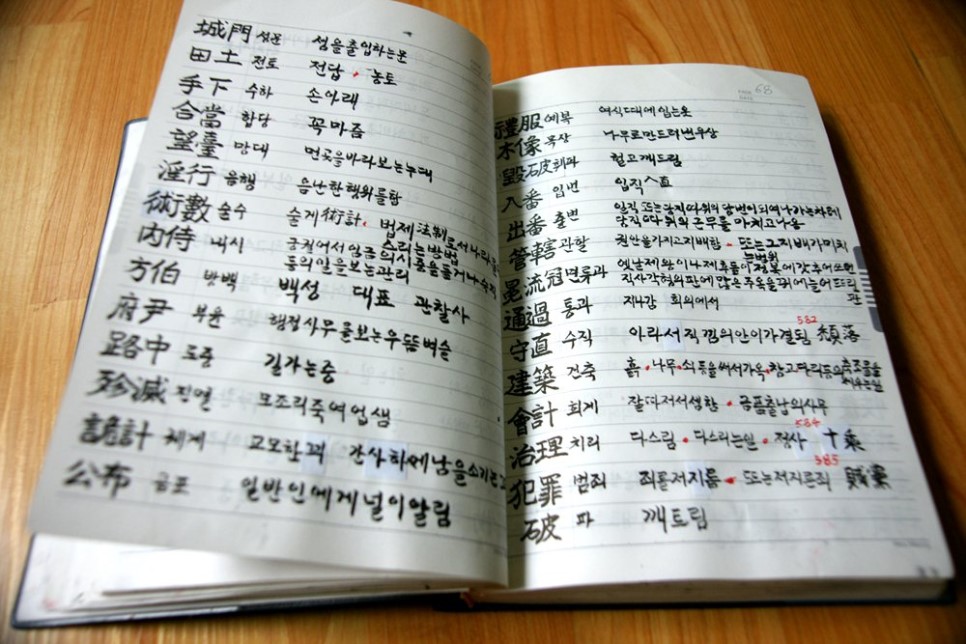 城門 성문 성을출입하는문
田土 전토 전답 , 농토
手下 수하 손아래
合當 합당 꼭마즘
望臺 망대 먼곳을바라보는누대
淫行 음행 음난한행위를함
術數 술수 술게術計. 법제法制로서나라를
스리는방법
内侍 내시 궁질어서임금의시중을들거나숙직
등의일을보는관리
方伯 방백 백성 대표 관찰사
府尹 부윤 행정사무를보는우뜸벼슬
路中 도중 길가는중
殄滅 진멸 모조리죽여업샘
詭計 궤계 교모한꾀 간사하게남을소기는
公布 공포 일반인에게널이알림
PAGE 68
DATE
禮服 예복 여식때에입는옷
木像 목상 나무로만드러번우상
毁石皮 훼파 헐고깨드림
入番 입번 입직 入直
出番 출번 일직또는당직따위의당번이되여나가는차례
당직따위의근무를마치고나옴
管轄 관할 권한을가지고지배함 . 또는그지배가미치
는범위
冕流冠 면류관 옛날제왕이나제후들이정복에갓추어쓰던
직사각형의판에많은주옥을꿔여늘어뜨린
관
通過 통과 지나감 회의에서
582
守直 수직 아라서직낌의안이가결됨 頹落
建築 건축 흙.나무.쇠등을써서가옥.창고다리등의축조물을
세우는일
會計 회게 잘따저서셍함 . 금품출납의사무
584
治理 치리 다스림 . 다스리는일 . 정사 十乘
385
犯罪 범죄 죄를저지름 . 또는저지른죄
石皮 파 깨트림